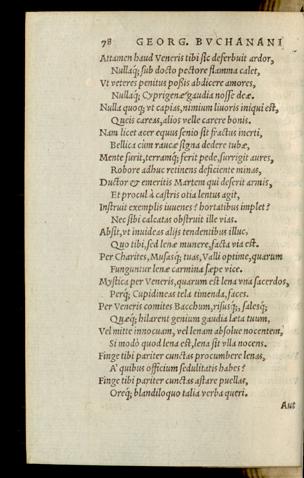 78 GEORG. BVCHANANI
Attamen haud Veneris tibi sic deferbuit ardor,
Nullaq; sub docto pectore flamma calet,
Vt veteres penitus poßis abdicere amores,
Nullaq; Cyprigenæ gaudia nosse deæ.
Nulla quoq; vt capias, nimium liuoris iniqui est,
Queis careas, alios velle carere bonis.
Nam licet acer equus senio sit fractus inerti,
Bellica cùm raucæ signa dedere tubæ,
Mente furit, terramq; ferit pede, surrigit aures,
Robore adhuc retinens deficiente minas,
Ductor & emeritis Martem qui deserit armis,
Et procul à castris otia lentus agit,
Instruit exemplis iuuenes? hortatibus implet?
Nec sibi calcatas obstruit ille vias.
Absit, vt inuideas alijs tendentibus illuc,
Quo tibi, sed lenæ munere, facta via est.
Per Charites, Musasq; tuas, Valli optime, quarum
Funguntur lenæ carmina sæpe vice.
Mystica per Veneris, quarum est lena vna sacerdos,
Perq; Cupidineas tela timenda, faces.
Per Veneris comites Bacchum, risusq;, salesq;
Quæq; hilarent genium gaudia læta tuum,
Vel mitte innocuam, vel lenam absolue nocentem,
Si modò quod lena est, lena sit vlla nocens.
Finge tibi pariter cunctas procumbere lenas,
A' quibus officium sedulitatis habes?
Finge tibi pariter cunctas astare puellas,
Oreq; blandiloquo talia verba queri.
Aut